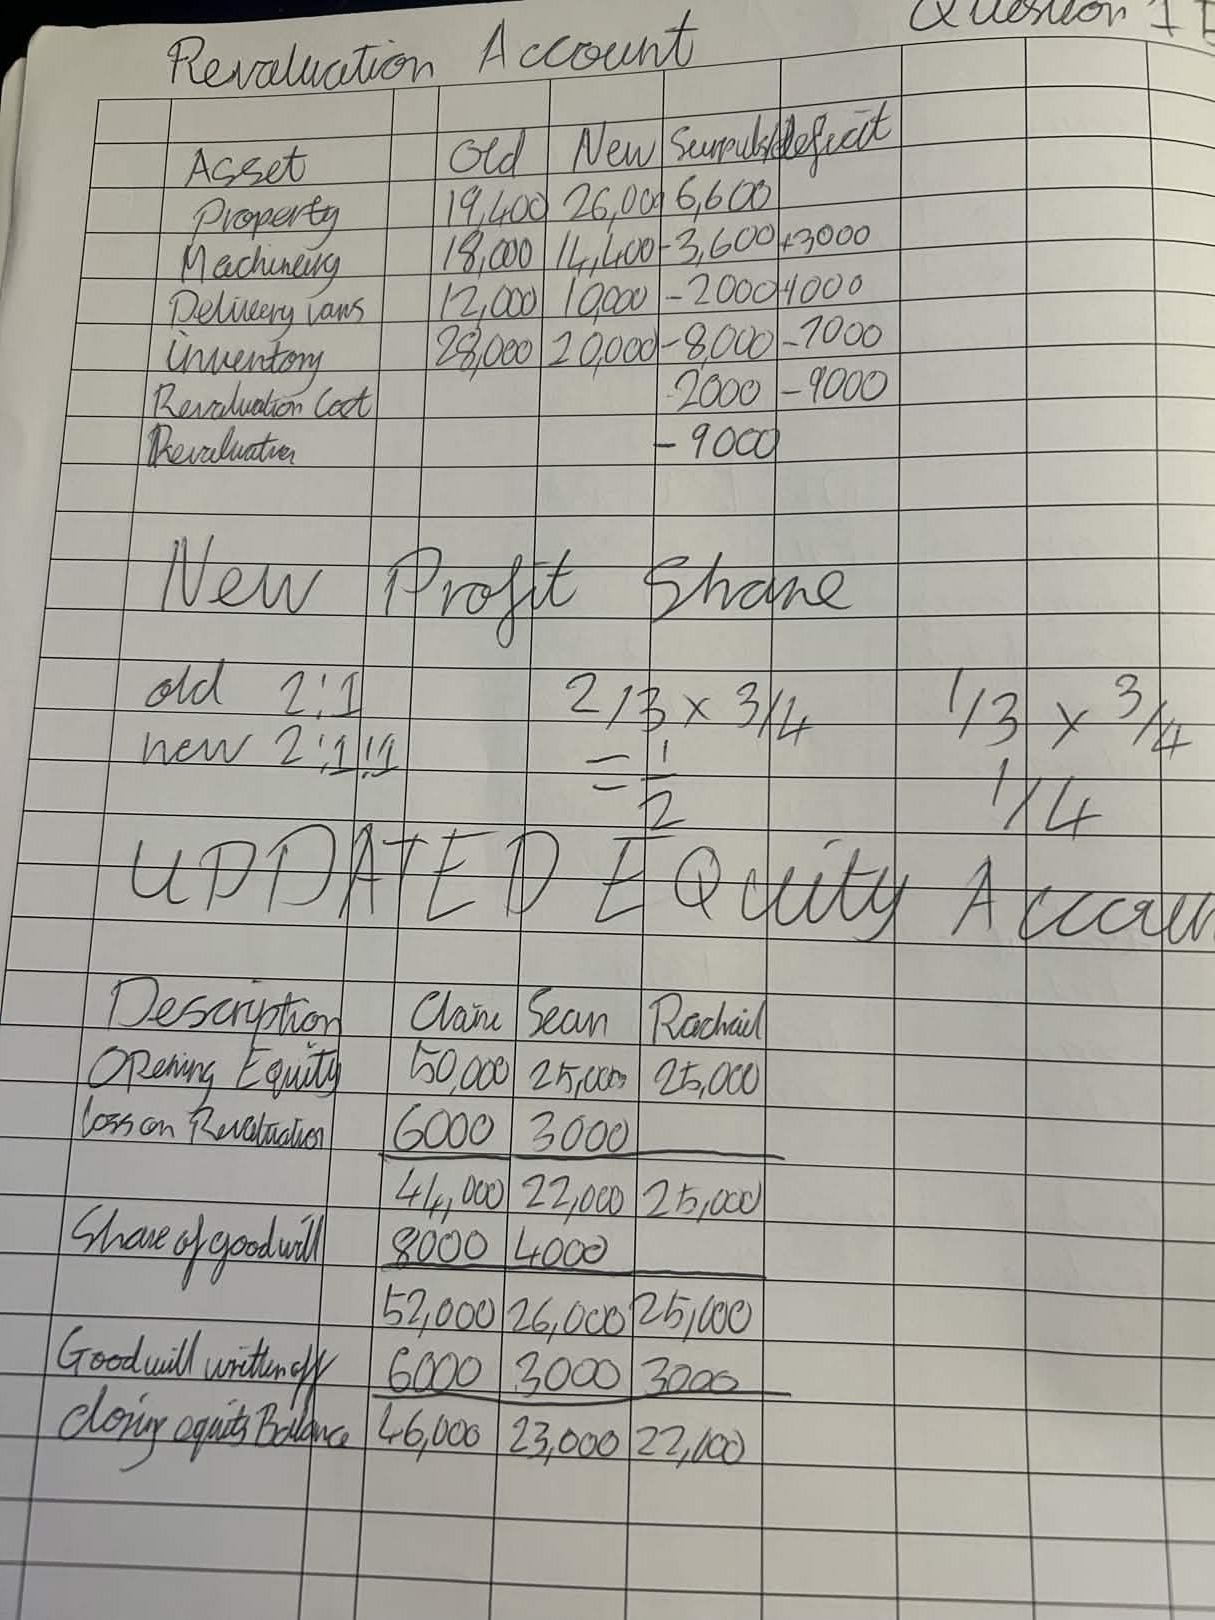 Question 1
Revaluation Account
Asset Old New Surpuls/deficit
Property 19,400 26,000 6,600
Machinery 18,000 14,400 -3,600 +3000
Delivery vans 12,000 10,000 -2000 +1000
inventory 28,000 20,000 -8,000 -7000
Revaluation Cost 2000 -9000
Revaluation -9000
New Profit Share
old 2:1 2/3 x 3/4 1/3 x 3/4
new 2:1:1 = 1/2 1/4
UPDATED EQuity Accoun
Description Claire Sean Rachail
Opening Equity 50,000 25,000 25,000
loss on Revaluation 6000 3000
44,000 22,000 25,000
Share of goodwill 8000 4000
52,000 26,000 25,000
Goodwill written off 6000 3000 3000
closing equity Balance 46,000 23,000 22,000